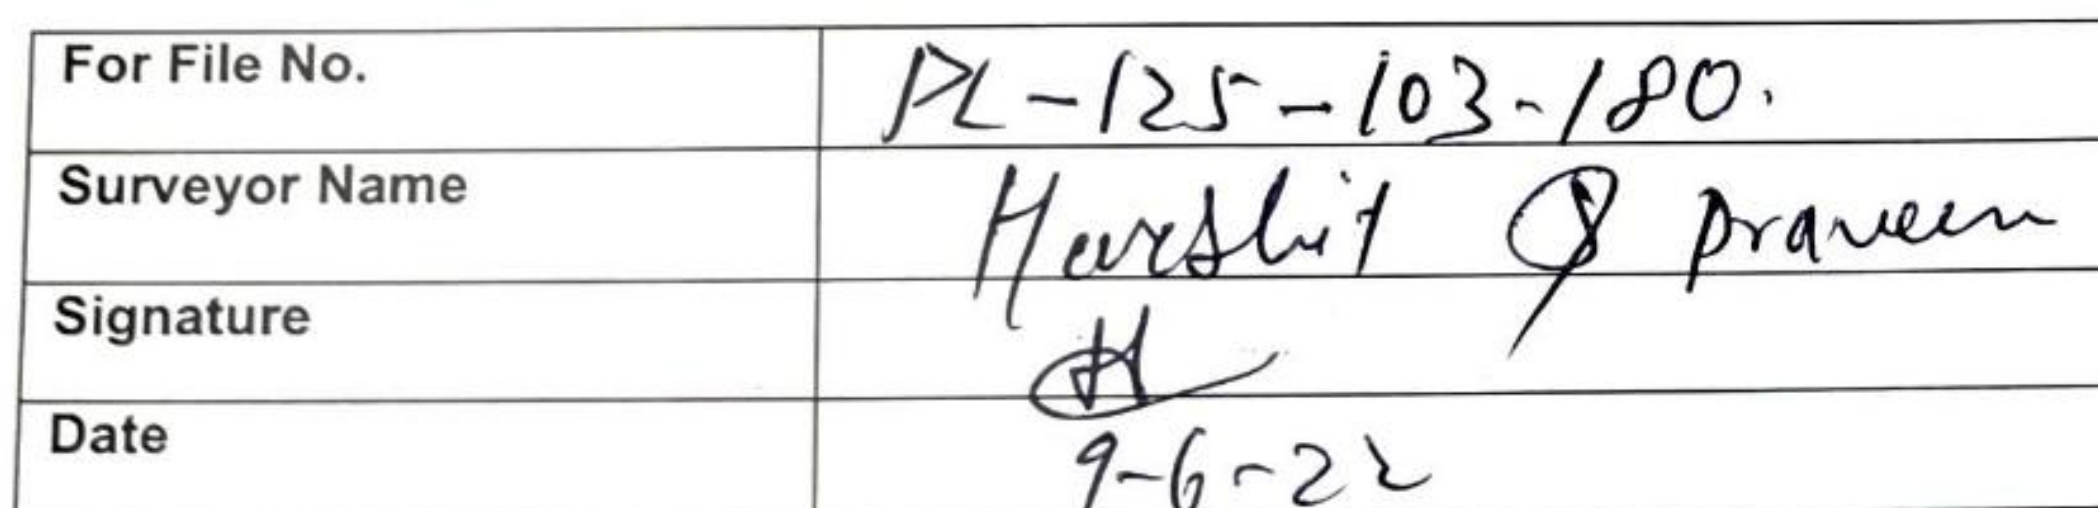 For File No. PL-125-103-180.
Surveyor Name Harshit & Praveen
Signature
Date 9-6-22